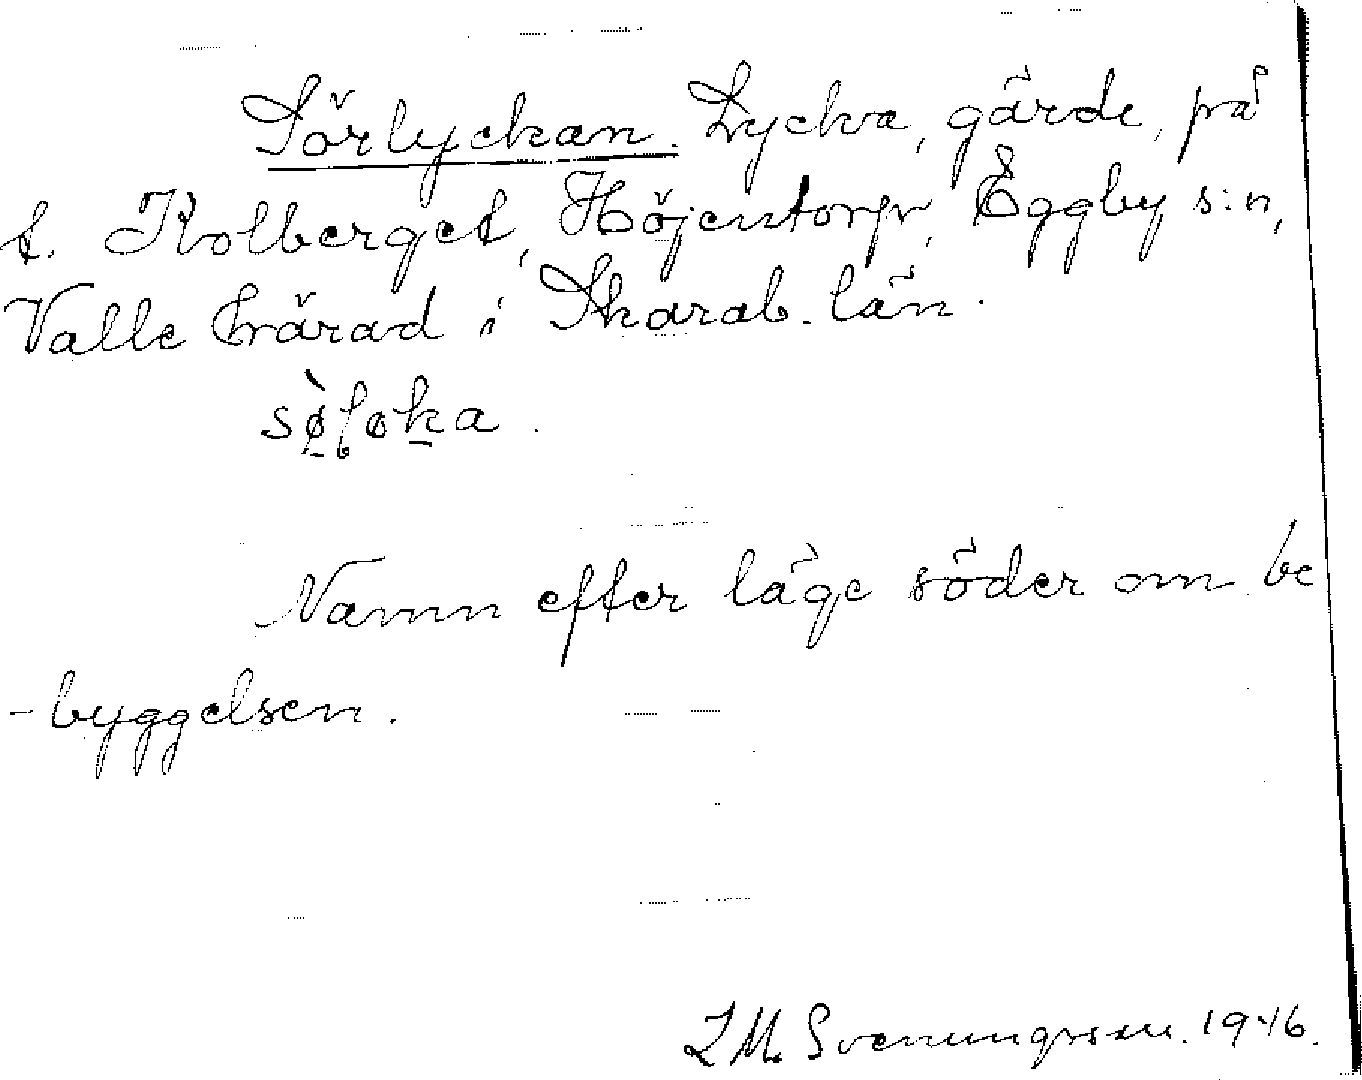 Sörlyckan. Lycka, gärde, på
t. Kolberget, Höjentorp, Eggby s:n,
Valle härad i Skarab. län.
Namn efter läge söder om be
-byggelsen.
L M. Svenungsson. 1946.